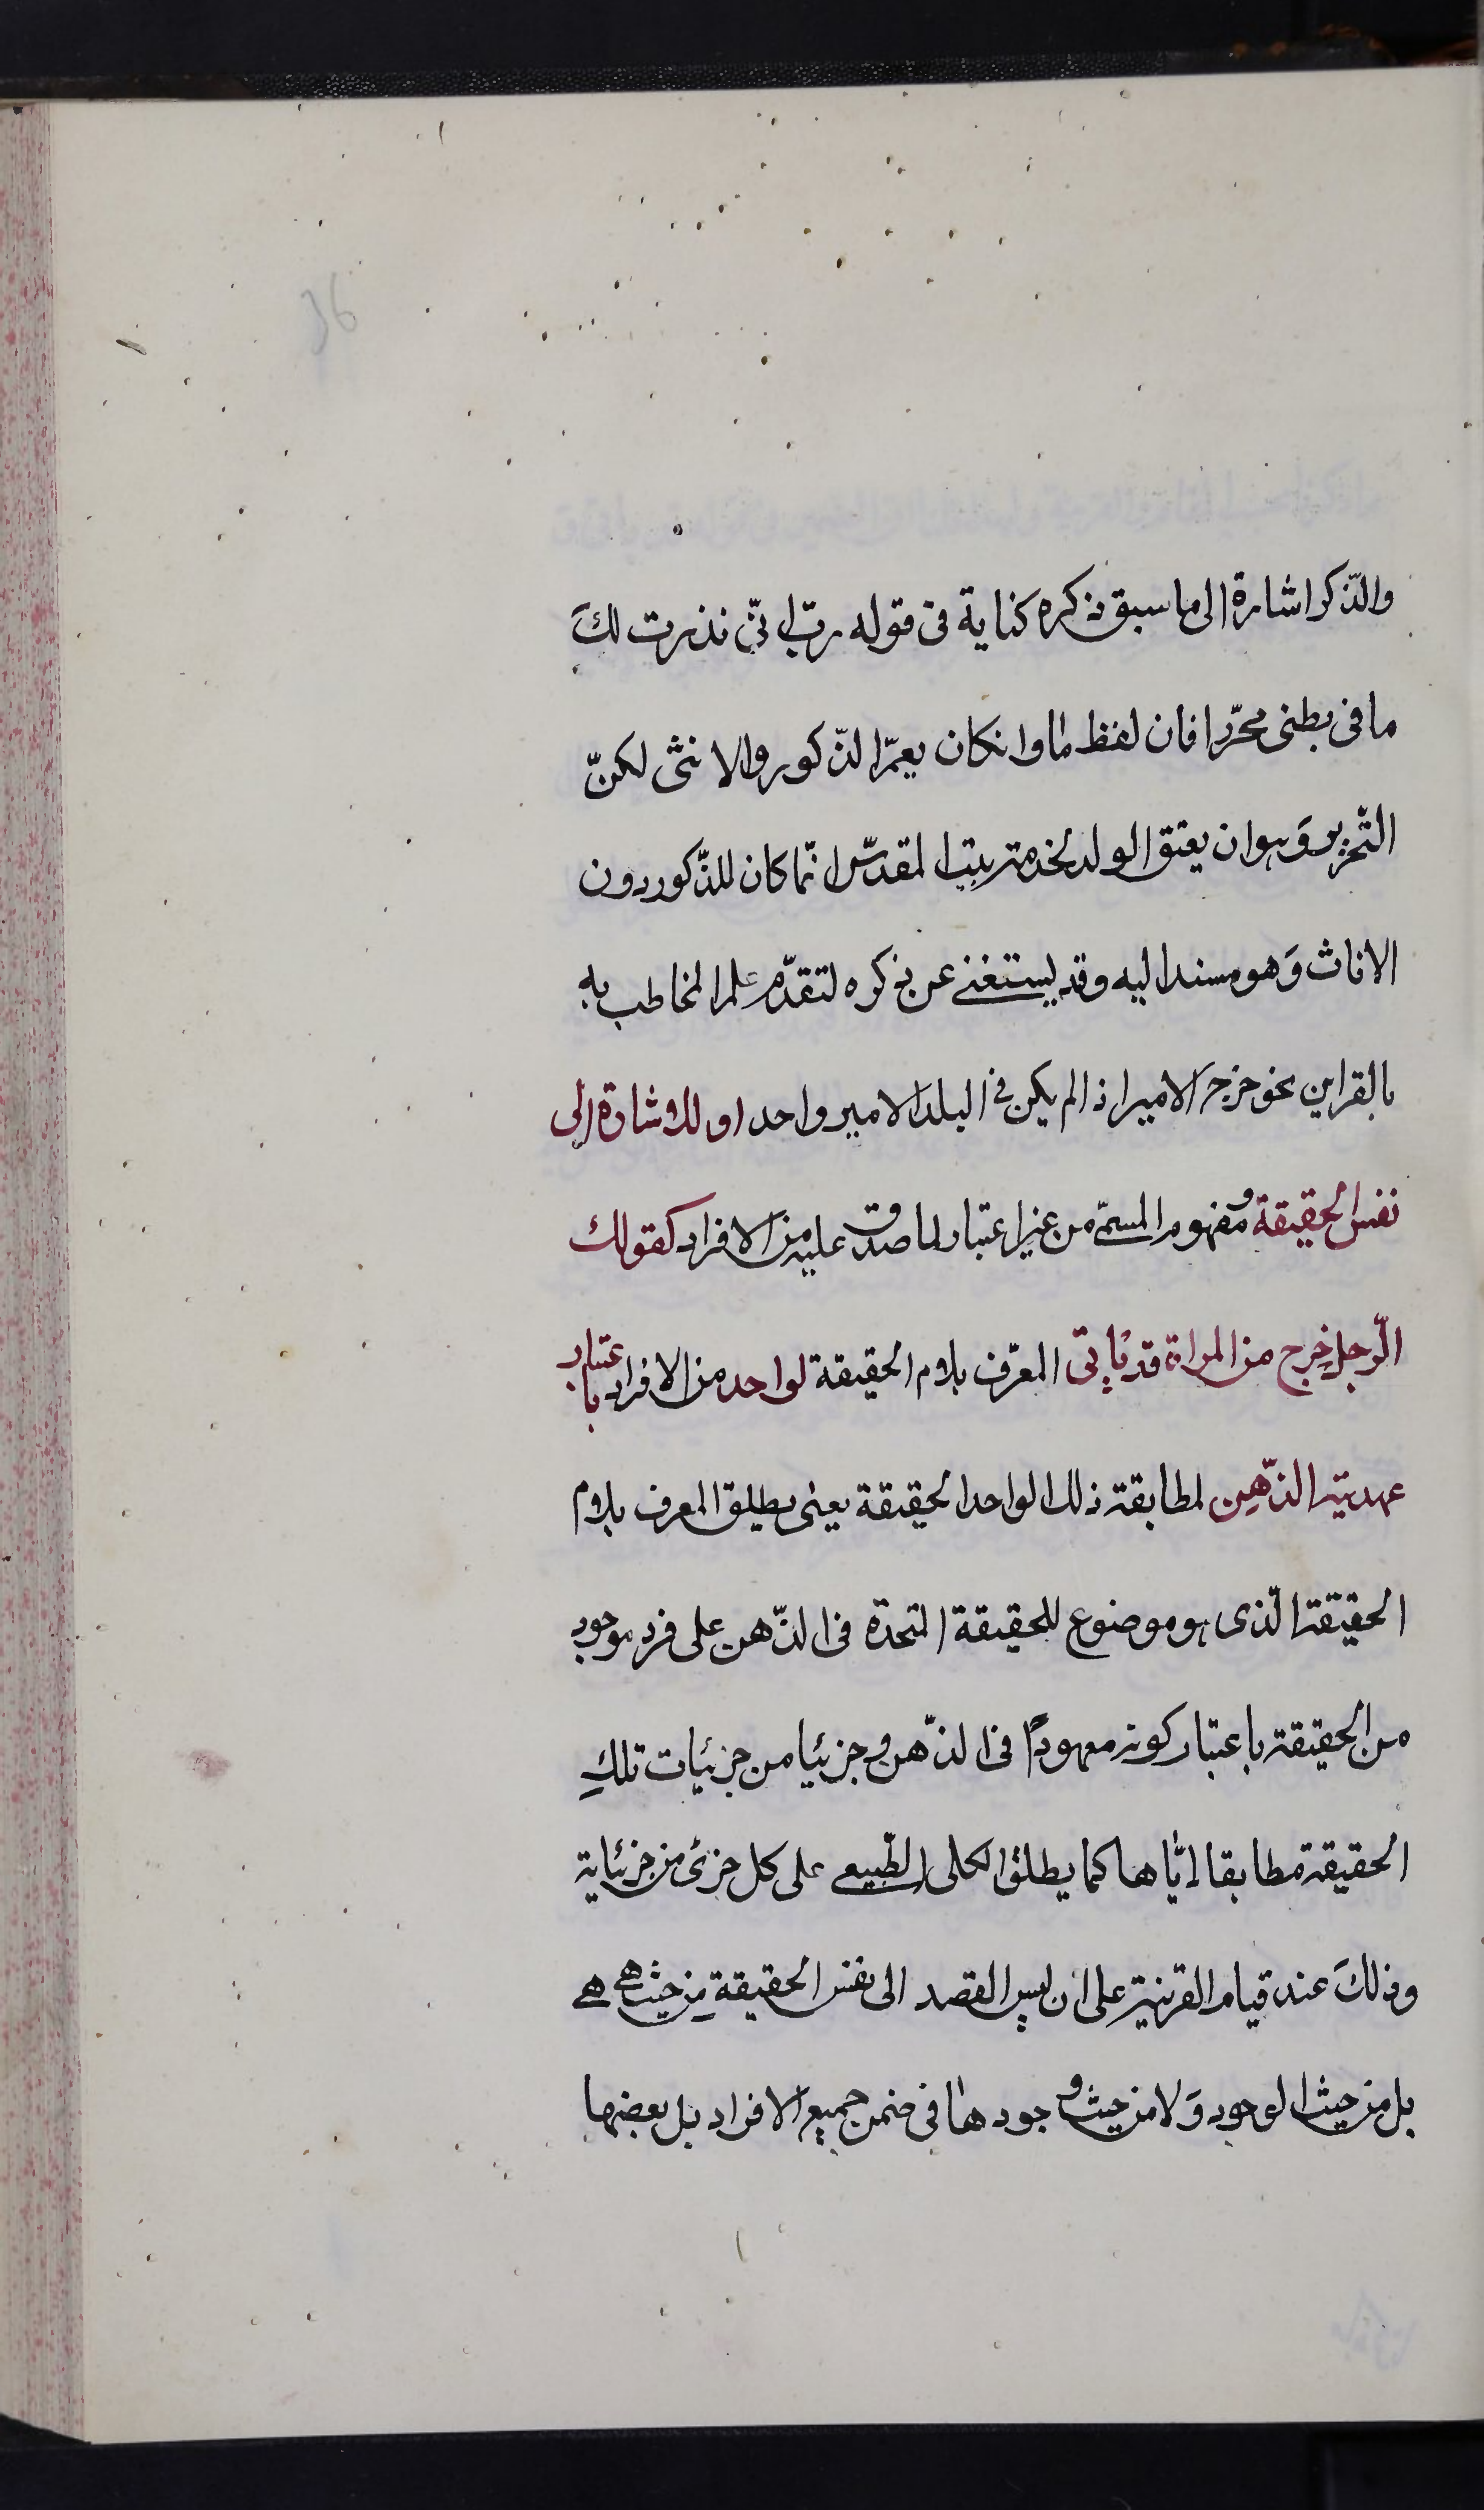 والذّكر اشارة الى ما سبق ذكره كناية فى قوله ربّ انّى نذرت لكَ
ما فى بطنى محرّرا فان لفظ ما وانكان يعمّ الذّكور والانثى لكنّ
التّحرير وَهو ان يعتق الولد لخدمة بيت المقدّس انّما كان للذّكور دون
الاناث وَهو مسند اليه وقد يستغنى عن ذكره لتقدّم علم المخاطب به
بالقراين نحو خرج الامير اذا لم يكن فى البلد الا امير واحد او للاشارة الى
نفس الحقيقة ومفهوم المسمّى من غير اعتبار لما صدق عليه من الافراد كقولك
الرّجل خرج من المراة قد يأتى المعرّف بلام الحقيقة لواحد من الافراد باعتبار
عهديته الذّهن لمطابقة ذلك الواحد الحقيقة يعنى يطلق المعرف بلام
الحقيقة الّذى هو موضوع للحقيقة المتحدة فى الذّهن على فرد موجود
من الحقيقة باعتبار كونه معهودًا فى الذّهن وجزئيا من جزئيات تلكِ
الحقيقة مطابقا ايّاها كما يطلق الكلى الطّبيعى على كل جزئ من جزئياته
وذلكَ عند قيام القرينة على ان ليس القصد الى نفس الحقيقة مِن حيث هى هى
بل من حيث الوجود وَلا من حيث وجودها فى ضمن جميع الافراد بل بعضها
36